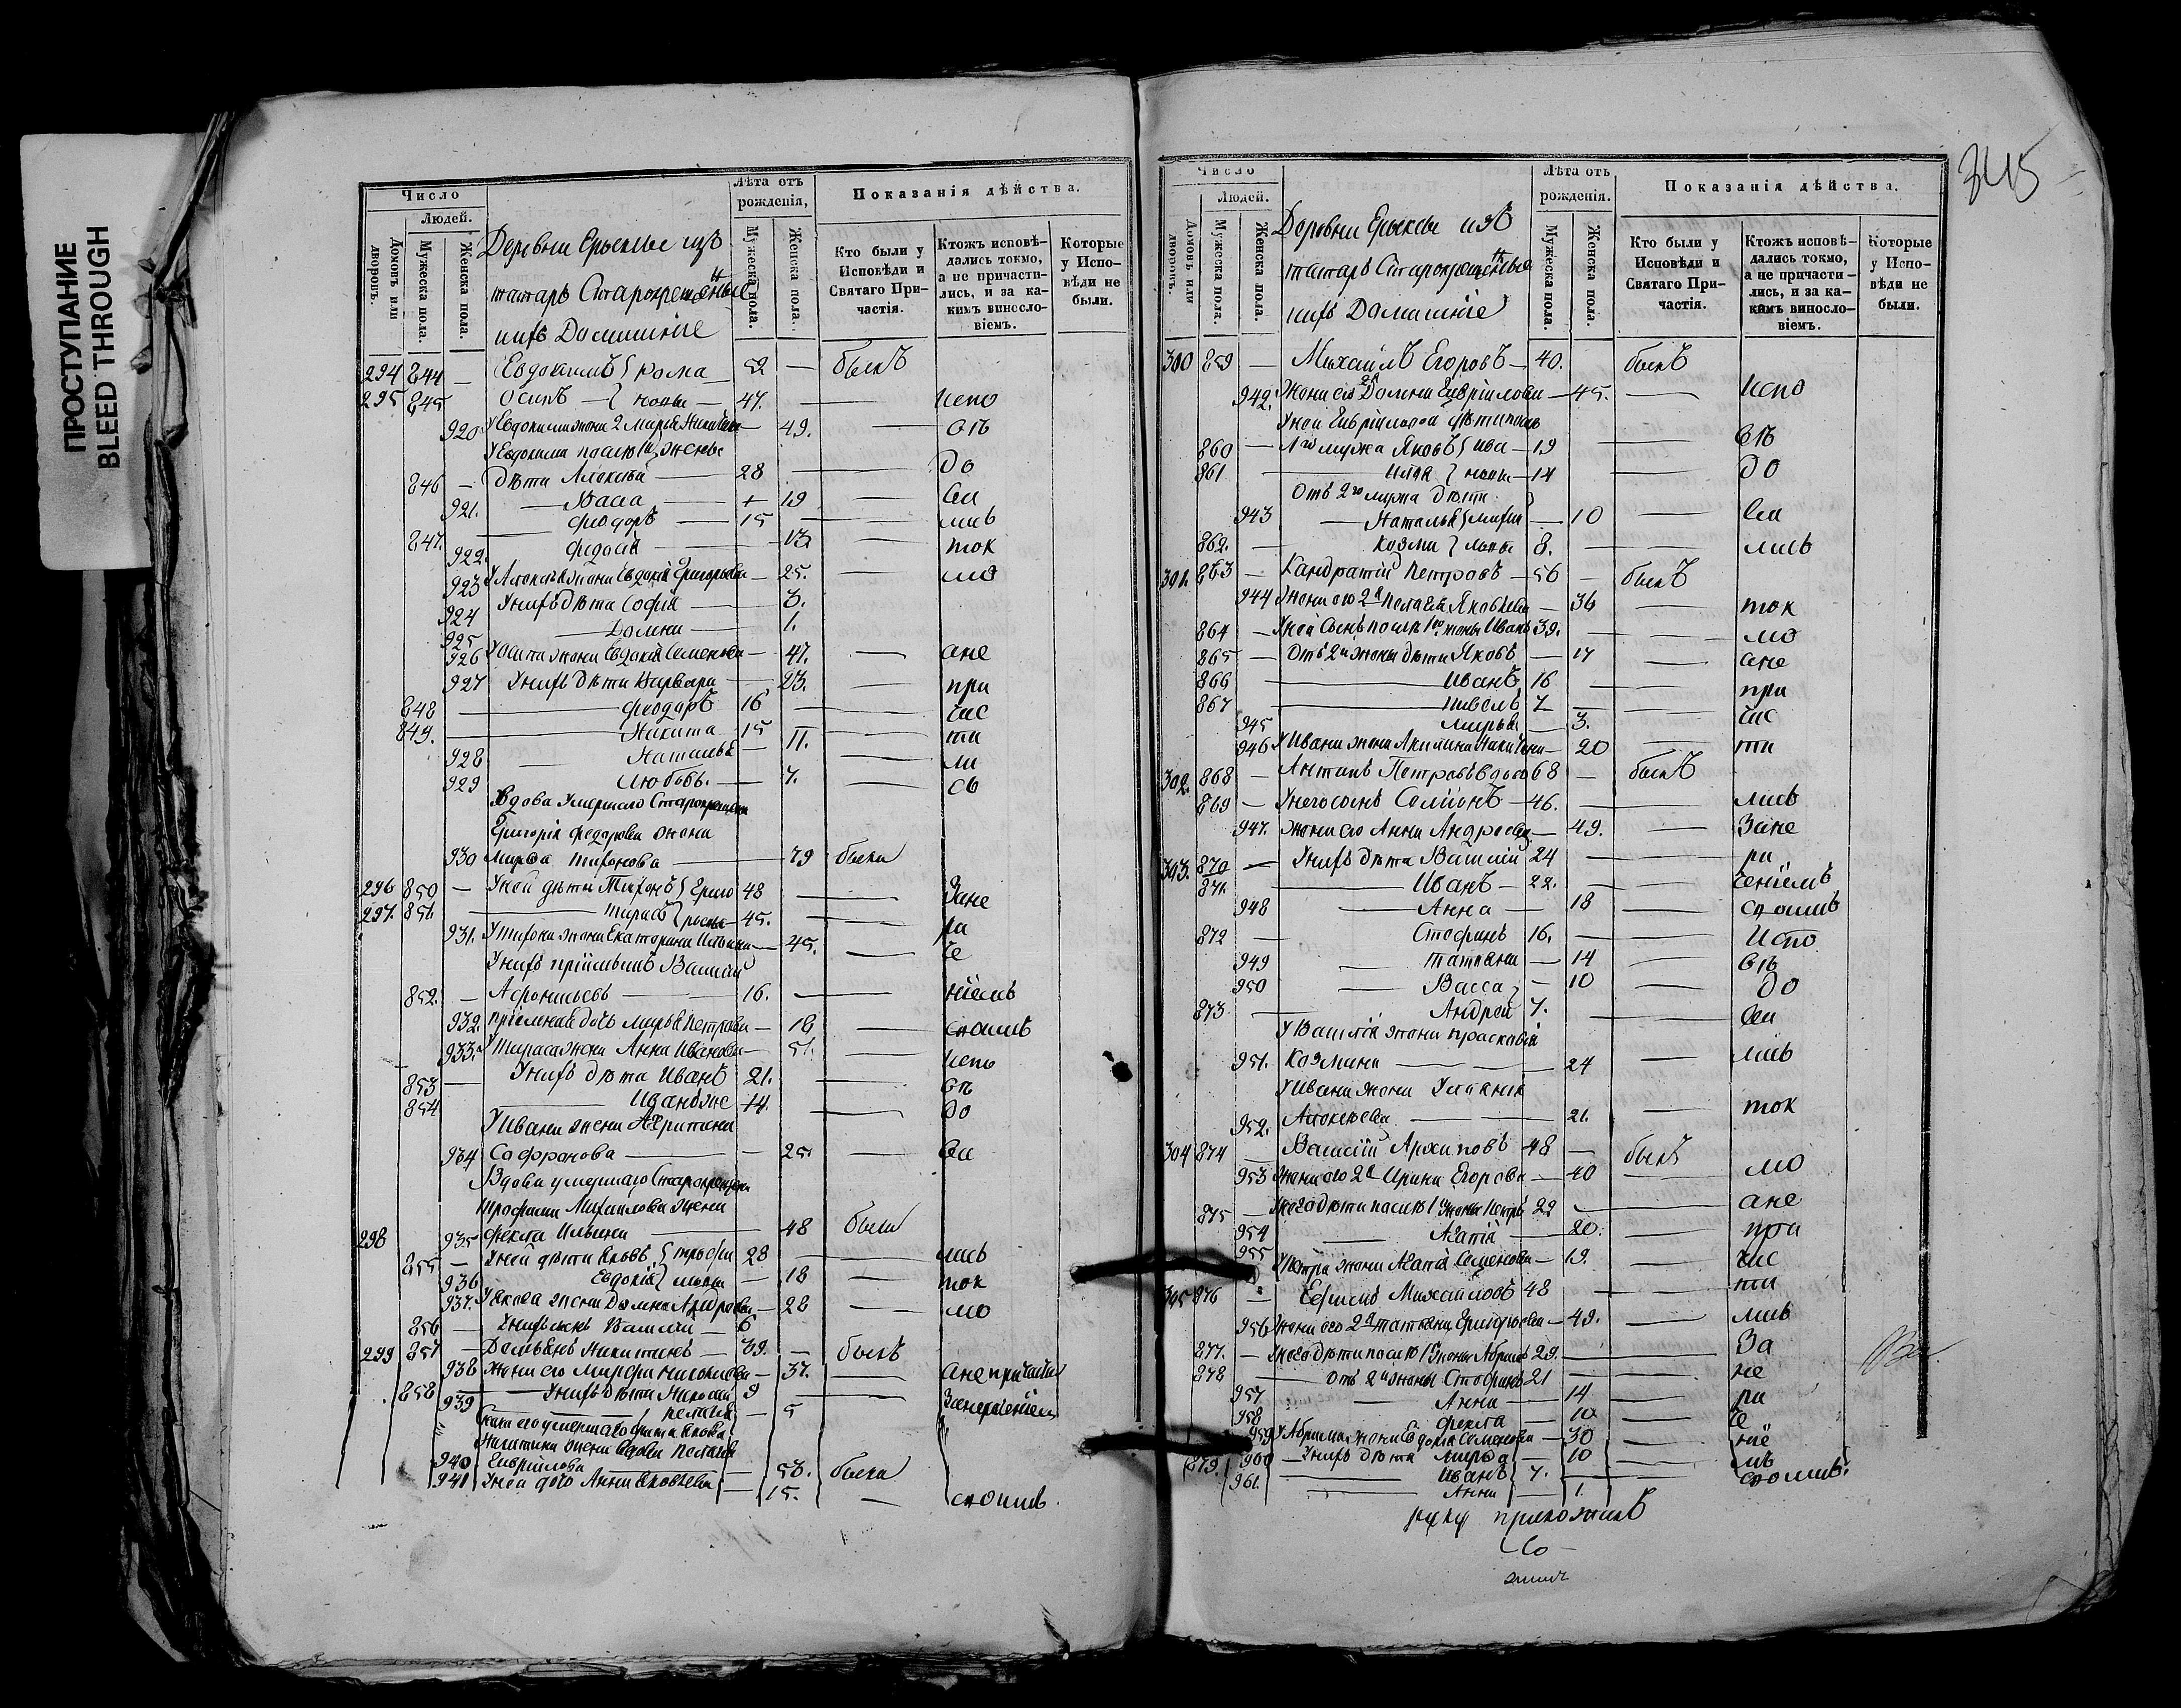 ПРОСТУПАНИЕ
BLEED THROUGH
345
Число
Людей.
Домовъ или дворовъ.
Мужеска пола.
Женска пола.
Лѣта отъ рожденія,
Мужеска пола.
Женска пола.
Показанія дѣйства.
Кто были у Исповѣди и Святаго Причастія.
Ктожъ исповѣдались токмо, а не причастились, и за какимъ винословіемъ.
Которые у Исповѣди не были.
Деревни Ерыклы изъ
татаръ Старокрещеные
ихъ Домашніе
294 844 — Евдокимъ Рома 52 — былъ
295 845 Осипъ новы 47. — испо
920 У Евдокима жена 2 Марья 49. — вѣ
У Евдокима после 1й жены
846 — дѣти Алексѣй 28 — до
921. Васса 19 — ва
Феодоръ 15 — лись
847.
922. Федосья 13 — ток
923 У Алексѣя жена Евдокія Григорьева 25. — мо
924 У нихъ дѣти Софія 3.
925 Домна 1.
926 У Осипа жена Евдокія Семенова 47. — ане
927 У нихъ дѣти Варвара 23. — при
848 Феодоръ 16 — час
849. Никита 15 — ти
928 Наталья 11. — ли
929 Любовь. 7. — сь
Вдова умершаго Старокрещен
Григорія Федорова жена
930 Марфа Тихонова 79 были
296 850 — У ней дѣти Тихонъ Григо 48 — Зане
297. 851 Тарасъ рьевы 45. — ра
931. У Тихона жена Екатерина Ильина 45. — че
У нихъ пріемышъ Василій
852. — Афонасьевъ 16. — ніемъ
932. пріемная дочь Марья Петрова 18 — споимъ
933. У Тараса жена Анна Иванова 51. — испо
853 — У нихъ дѣти Иванъ 21. — вѣ
854 Иванъ же 14. — до
У Ивана жена Харитина
934 Сафронова 25. — ва
Вдова умершаго Старокрещен
Трофима Михайлова жена
298 935 Фекла Ильина 48 была
855 — У ней дѣти Яковъ Трофи 28 — лись
936 Евдокія мовы 18 — ток
937. У Якова жена Домна Андреева 28 — мо
856 — У нихъ сынъ Василій 6
299 857 — Демьянъ Никитинъ 39. — былъ
938 Жена его Марфа 37. — ане причасти
858 У нихъ дѣти Николай 9
939 Пелагея 5 Занераченіем
Брата его умершаго Якова
Никитина жена вдова Пелагея
940 Гаврилова 53. была
941 У ней дочь Анна Яковлева 15. — споимъ
Число
Людей.
Домовъ или дворовъ.
Мужеска пола.
Женска пола.
Лѣта отъ рожденія.
Мужеска пола.
Женска пола.
Показанія дѣйства.
Кто были у Исповѣди и Святаго Причастія.
Ктожъ исповѣдались токмо, а не причастились, и за какимъ винословіемъ.
Которые у Исповѣди не были.
Деревни Ерыклы изъ
татаръ Старокрещеные
ихъ Домашніе
300 859 — Михаилъ Егоровъ 40. былъ
942. Жена его 2я Домна Гаврилова 45. — испо
У ней Гавриловой дѣти посл
860 — 1го мужа Яковъ Ива 19 — вѣ
861 Илья новы 14 — до
Отъ 2го мужа дѣти
943 Наталья Михай 10 — ва
862. Козма ловы 8. — лись
301. 863 — Кандратій Петровъ 56 — былъ
944 Жена его 2я Пелагея Яковлева 36 — ток
864 — У ней сынъ после 1го жены Иванъ 39. — мо
865 — Отъ 2й жены дѣти Яковъ 17 — ане
866 Иванъ 16 — при
867 Павелъ 7 — час
945 Марья 3.
946 У Ивана жена Акилина Никитина 20 — ти
302. 868 — Антонъ Петровъ вдовъ 68 — былъ
869 — У него сынъ Семіонъ 46. — лись
947. Жена его Анна Андреева 49. — Зане
303. 870 — У нихъ дѣти Василій 24 — ра
871. Иванъ 22. — ченіемъ
948 Анна 18 — споимъ
872 — Стефанъ 16. — Испо
949 Татьяна 14 — вѣ
950 Васса 10 — до
873 Андрей 7. — ва
У Василія жена Прасковія
951. Козмина 24 — лись
У Ивана жена Ульяния
952. Алексѣева 21. — ток
304 874 — Василій Архиповъ 48 — былъ
953 Жена его 2я Ирина Егорова 40 — мо
875 — У него дѣти после 1й жены Петръ 22 — ане
954 Агапія 20. — при
955 У Петра жена Агапія Семенова 19. — час
305 876 — Михайловъ 48 — ти
956 Жена его 2я Татьяна Григорьева 49. — лись
877. — У него дѣти после 1й жены Абрамъ 29. — За
878 — Отъ 2й жены Стефанъ 21 — не
957 Анна 14 — ра
958 Фекла 10 — че
959 У Абрама жена Семенова 30 — ніе
960 У нихъ дѣти Марфа 10 — мъ
879. Иванъ 7. — споимъ.
961. Анна 1.